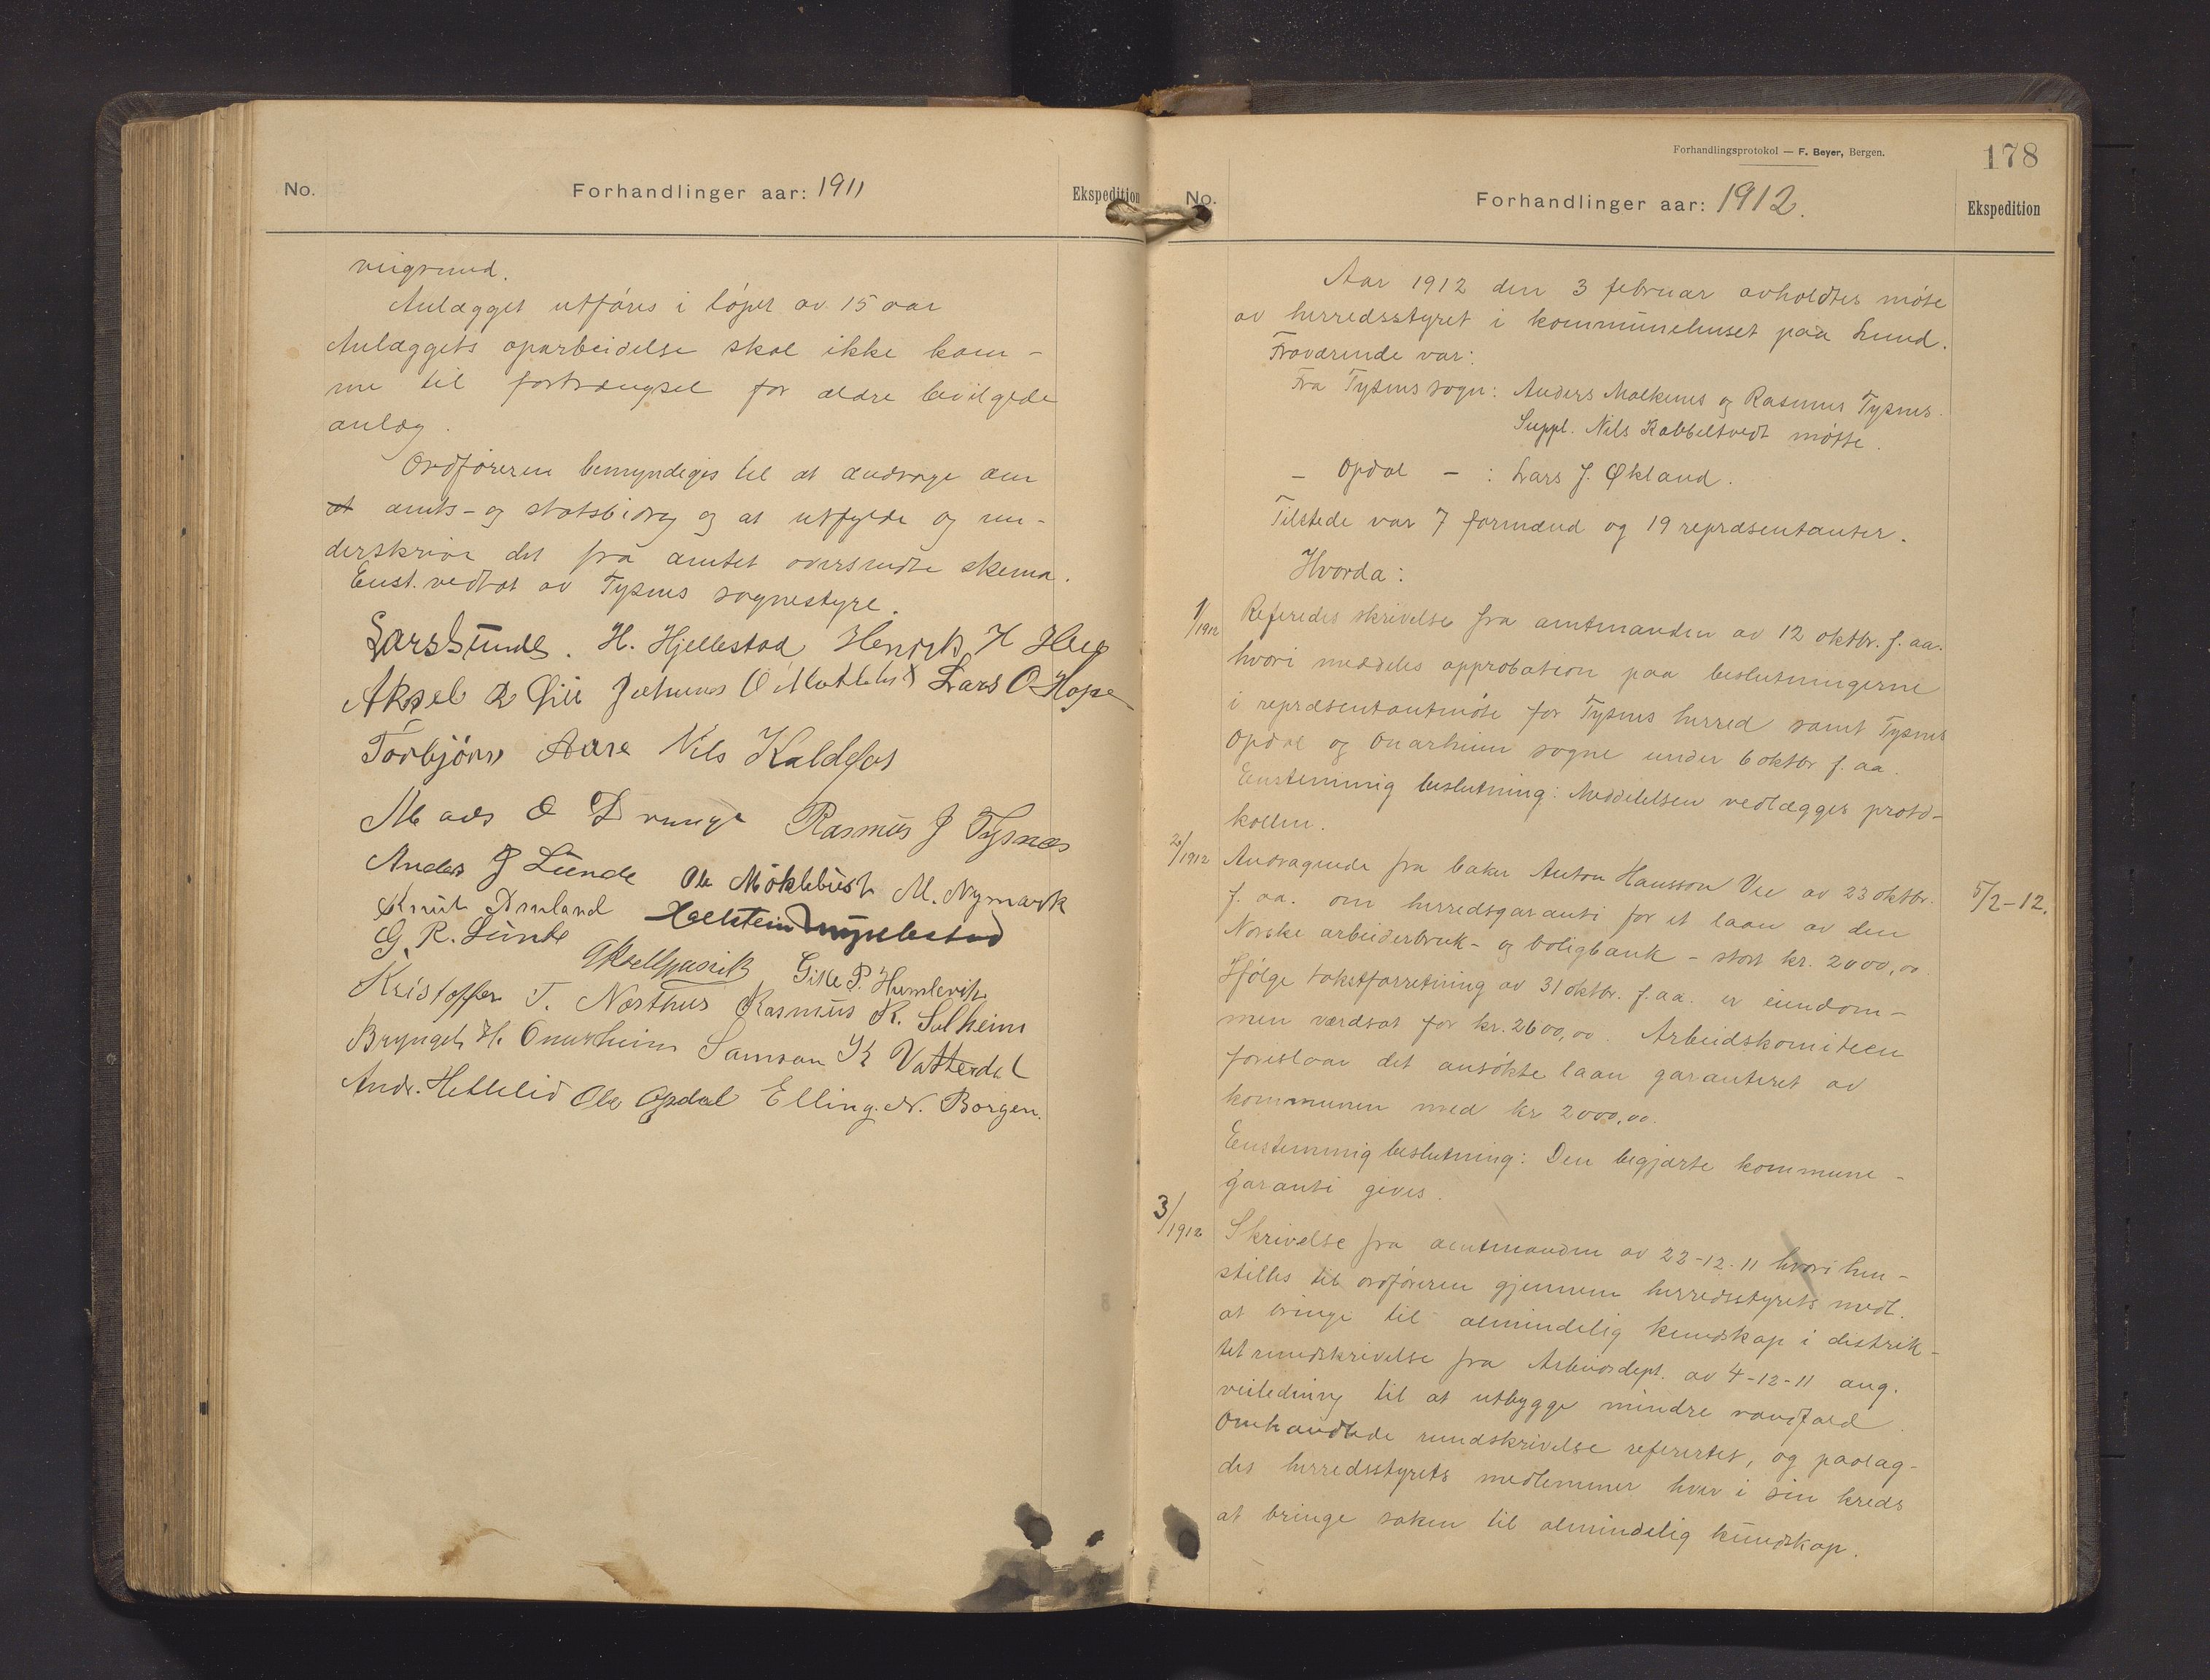 No. Forhandlinger aar: 1911 Ekspedition
veigrund.
Anlægget utføres i løpet av 15 aar
Anlæggets oparbeidelse skal ikke kom-
me til fortrængsel for ældre bevilgede
anlæg.
Ordføreren bemyndiges til at andrage om
at amts- og statsbidrag og at utfylde og un-
derskrive det fra amtet oversendte skema.
Enst. vedtat av Tysnes sognestyre.
Lars Lunde. H. Hjellestad Henrik H Heie
Aksel R Gjøie Johannes O Møkleb Lars O Hope
Torbjørn Aare Nils Kaldefos
Mads O Drange Rasmus J Tysnæs
Anders J Lunde Ole Møklebust M. Nymark
Knut Amland Halstein Myklestad
G. R. Lunde Gitle P. Humlevik
Kristoffer T. Northus Rasmus R. Solheim
Brynjel H. Onarheim Samson K Vatterdal
Andr. Hettleid Ole Opdal Elling N. Borgen.
Forhandlingsprotokol — F. Beyer, Bergen.
178
No. Forhandlinger aar: 1912. Ekspedition
Aar 1912 den 3 februar avholdtes møte
av herredsstyret i kommunehuset paa Lund.
Fraværende var:
Fra Tysnes sogn: Anders Malkenes og Rasmus Tysnes.
Suppl. Nils Kobbeltvedt møtte.
- Opdal - : Lars J. Økland.
Tilstede var 7 formænd og 19 repræsentanter.
Hvorda:
1/1912 Referedes skrivelse fra amtmanden av 12 oktbr. f. aa.
hvori meddeles approbation paa beslutningerne
i repræsentantmøte for Tysnes herred samt Tysnes
Opdal og Onarheim sogne under 6 oktbr f. aa.
Enstemmig beslutning: Meddelelsen vedlægges proto-
kollen.
2/1912 Andragende fra baker Anton Hansson Vee av 23 oktbr. 5/2-12.
f. aa. om herredsgaranti for et laan av den
Norske arbeiderbruk- og boligbank - stort kr. 2000,00.
Ifølge takstforretning av 31 oktbr. f. aa. er eiendom-
men værdsat for kr. 2600,00. Arbeidskomiteen
foreslaar det ansøkte laan garanteret av
kommunen med kr 2000,00.
Enstemmig beslutning: Den begjærte kommune-
garanti gives.
3/1912 Skrivelse fra amtmanden av 22-12-11 hvori hen-
stilles til ordføreren gjennem herredsstyrets medl.
at bringe til almindelig kundskap i distrik-
tet rundskrivelse fra Arbeidsdept. av 4-12-11 ang.
veiledning til at utbygge mindre vandfald.
Omhandlede rundskrivelse refertes, og paalag-
des herredsstyrets medlemmer hver i sin kreds
at bringe saken til almindelig kundskap.